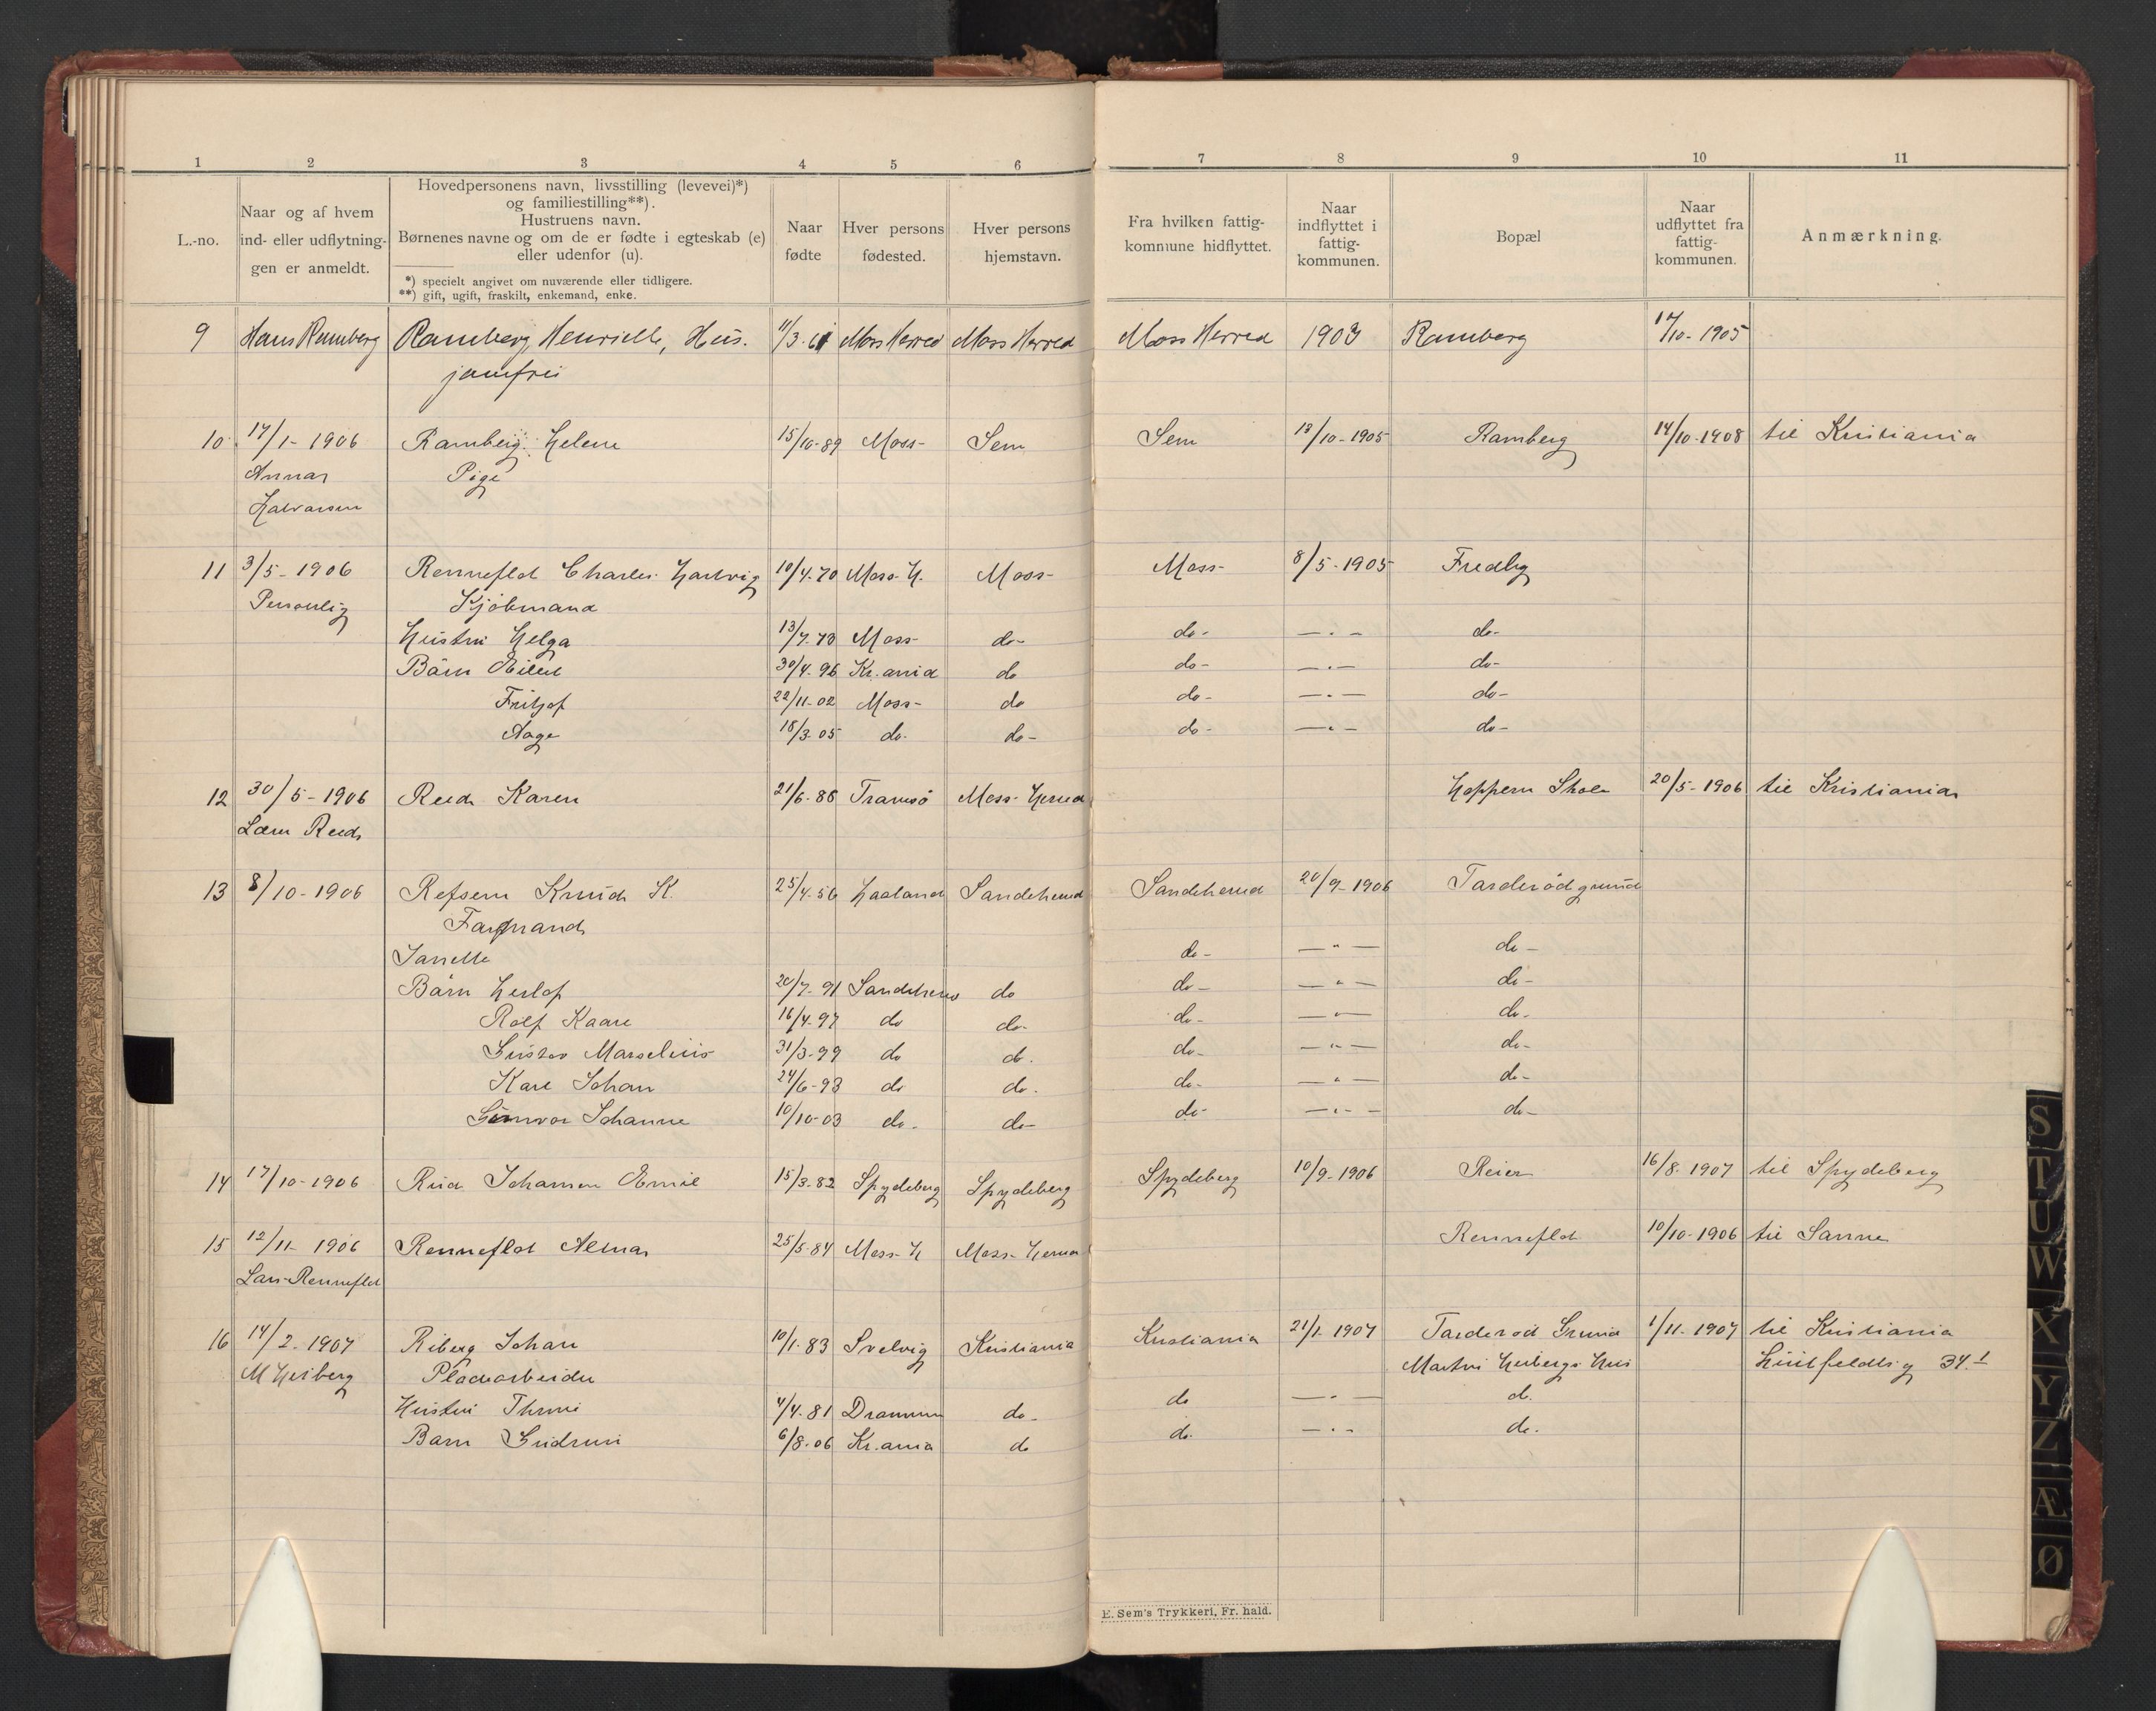 1 2 3 4 5 6 7 8 9 10 11
L.-no.
Naar og af hvem
ind- eller udflytnin-
gen er anmeldt.
Hovedpersonens navn, livsstilling (levevei)*)
og familiestilling**).
Hustruens navn.
Børnenes navne og om de er fødte i egteskab (e)
eller udenfor (u).
*) specielt angivet om nuværende eller tidligere.
**) gift, ugift, fraskilt, enkemand, enke.
Naar
fødte
Hver persons
fødested.
Hver persons
hjemstavn.
Fra hvilken fattig-
kommune hidflyttet.
Naar
indflyttet i
fattig-
kommunen.
Bopæl
Naar
udflyttet fra
fattig-
kommunen.
Anmærkning.
9 Hans Ramberg Ramberg, Henriette, Hus. 11/3-61 Moss Herred Moss Herred Moss Herred 1903 Ramberg /10-1905
jomfru
10 17/1-1906 Ramberg Helene 15/10-89 Moss- Sem Sem 18/10-1905 Ramberg 14/10-1908 til Kristiania
Anna Pige
Halvorsen
11 3/5-1906 Renneflot Charles Hartvig 10/4-70 Moss H. Moss- Moss- 8/5-1905 Fredly
Personlig Kjøbmand
Hustru Helga 13/7-73 Moss- do- do- —„— do-
Børn Eilert 30/4-96 Kr.ania do do- —„— do-
Fritjof 22/11-02 Moss- do do- —„— do-
Aage 18/3-05 do- do- do- —„— do-
12 30/5-1906 Reed Karen 21/6-86 Tromsø Moss-Herred Hoppern Skole 20/5-1906 til Kristiania
Reed
13 8/10-1906 Refsem Knud K. 25/4-56 Haaland Sandeherred Sandeherred 20/9-1906 Tarderødgrund
Fangmand
Janette do- —„— do-
Børn Herlof 20/7-91 Sandeherred do do- —„— do-
Rolf Kaare 16/4-97 do do- do- —„— do-
Gustav Marselius 31/3-99 do do. do- —„— do-
Karl Johan 24/6-93 do do. do- —„— do-
Gunvor Johanne 10/10-03 do- do- do- —„— do-
14 17/10-1906 Rud Johannes Emil 15/3-82 Spydeberg Spydeberg Spydeberg 10/9-1906 Reier 16/8-1907 til Spydeberg
15 12/11-1906 Renneflot Alma 25/5-84 Moss-H Moss-Herred Renneflot 10/10-1906 til Sanne
Lars Renneflot
16 14/2-1907 Riberg Johan 10/1-83 Svelvig Kristiania Kristiania 21/1-1907 Tarderød Grund 1/11-1907 til Kristiania
M Herberg Pladearbeider Martin Herbergs Hus 34.I
Hustru Thrine 4/4-81 Drammen do- do —„— do.
Barn Gudrun 6/8-06 Kr.ania do do. —„— do.
E. Sem's Trykkeri, Fr. hald.
S
T
U
W
X
Y
Z
Æ
Ø